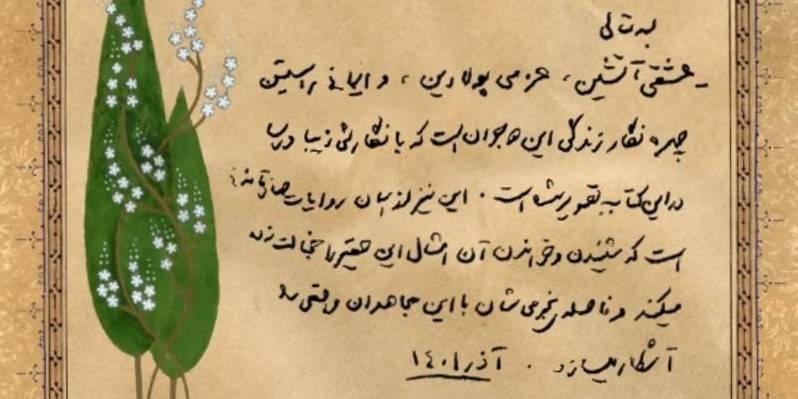 بسمه‌تعالی
عشقی آتشین، عزمی پولادین، و ایمانی راستین
چهره‌نگار زندگی این مهاجران است که با نگارشی زیبا و رسا
در این کتاب به تصویر کشیده شده است. این نیز از همان روایات صادقانه‌ای
است که شنیدن و خواندن آن امثال این حقیر را خجالت‌زده
میکند و فاصله‌ی نجومی‌شان با این مجاهدان واقعی را
آشکار میسازد. آذر ۱۴۰۱